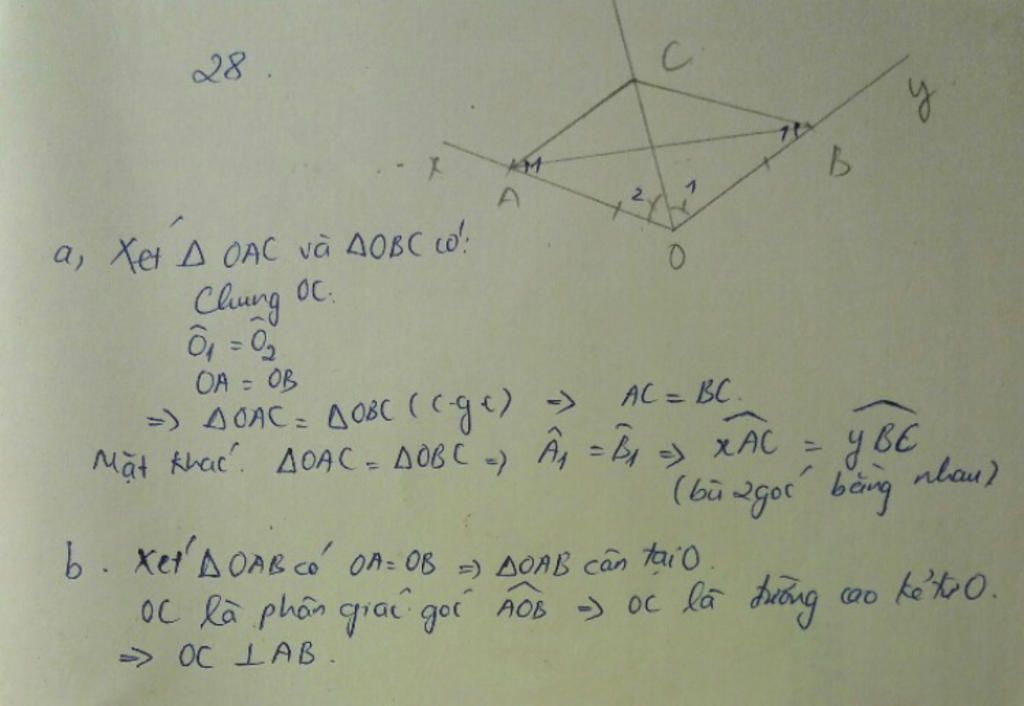 28.
C
y
x
A
1
1
B
2
1
O
a, Xét Δ OAC và ΔOBC có:
Chung OC.
Ô1 = Ô2
OA = OB
=> ΔOAC = ΔOBC (c-g c) => AC = BC.
Mặt khác. ΔOAC = ΔOBC => Â1 = B̂1 => x͡AC = y͡BC
(bù 2 góc bằng nhau)
b. Xét ΔOAB có OA = OB => ΔOAB cân tại O.
OC là phân giác góc A͡OB => OC là đường cao kẻ từ O.
=> OC ⊥ AB.